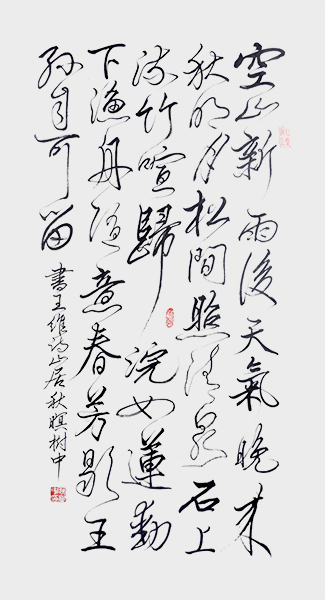 空山新雨後天氣晚来
秋明月松間照清泉石上
流竹喧歸浣女蓮動
下漁舟隨意春芳歇王
孫自可留
書王維詩山居秋暝樹中